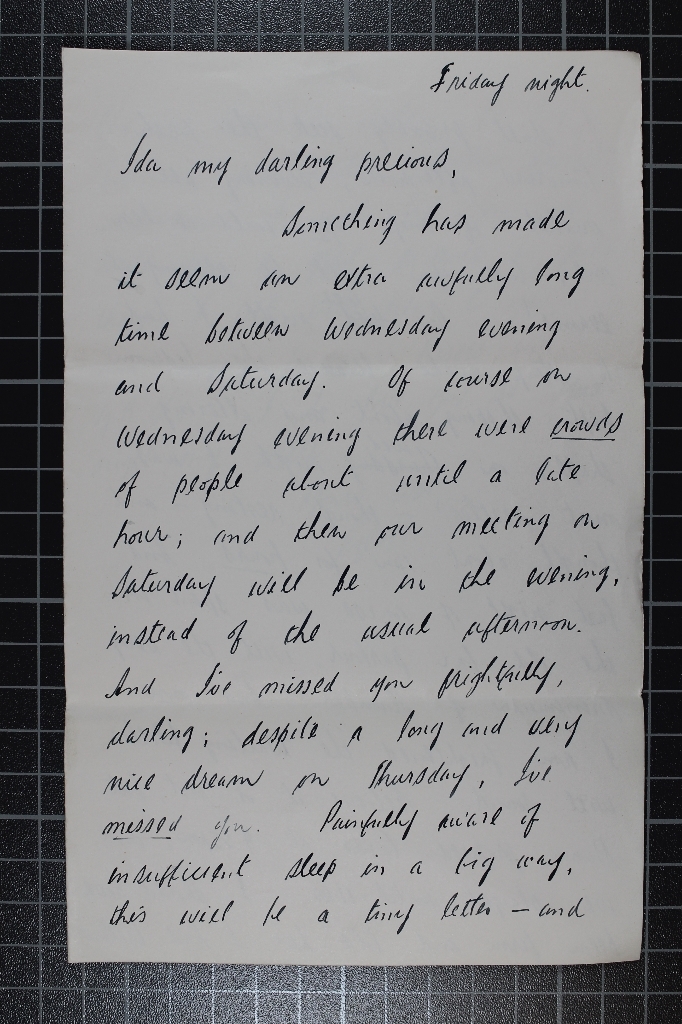 Friday night.
Ida my darling precious,
Something has made
it seem an extra awfully long
time between Wednesday evening
and Saturday. Of course on
Wednesday evening there were crowds
of people about until a late
hour; and then our meeting on
Saturday will be in the evening,
instead of the usual afternoon.
And I've missed you frightfully,
darling; despite a long and very
nice dream on Thursday, I've
missed you. Painfully aware of
insufficient sleep in a big way,
this will be a tiny letter — and